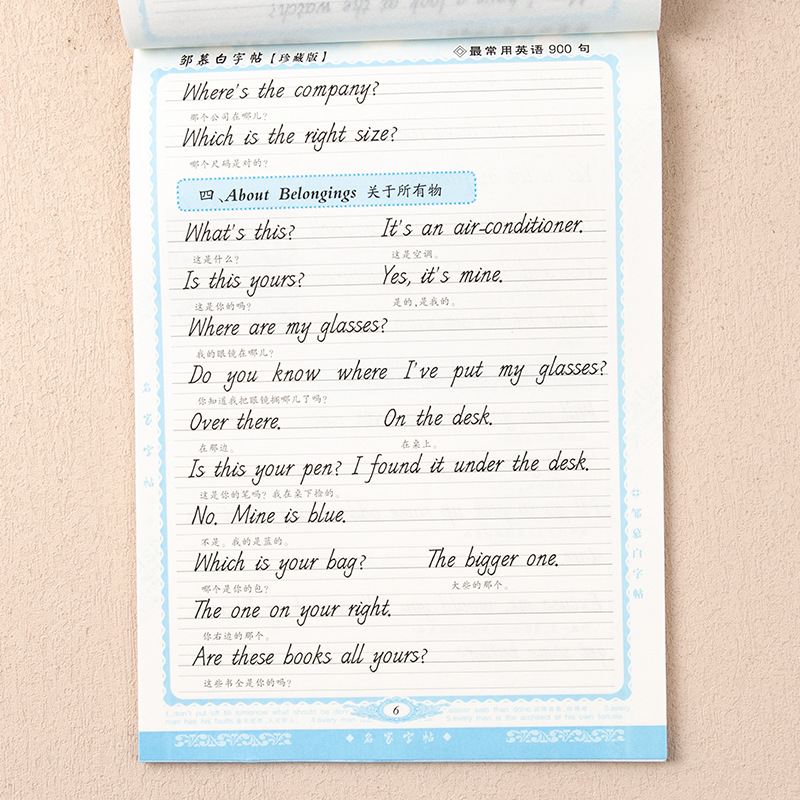 have a look at the watch?
邹慕白字帖【珍藏版】 ◇最常用英语 900 句
Where's the company?
那个公司在哪儿?
Which is the right size?
哪个尺码是对的?
四、About Belongings 关于所有物
What's this? It's an air-conditioner.
这是什么? 这是空调。
Is this yours? Yes, it's mine.
这是你的吗? 是的,是我的。
Where are my glasses?
我的眼镜在哪儿?
Do you know where I've put my glasses?
你知道我把眼镜搁哪儿了吗?
Over there. On the desk.
在那边。 在桌上。
Is this your pen? I found it under the desk.
这是你的笔吗? 我在桌下捡的。
No. Mine is blue.
不是。我的是蓝的。
Which is your bag? The bigger one.
哪个是你的包? 大些的那个。
The one on your right.
你右边的那个。
Are these books all yours?
这些书全是你的吗?
名家字帖
邹慕白字帖
6
名家字帖